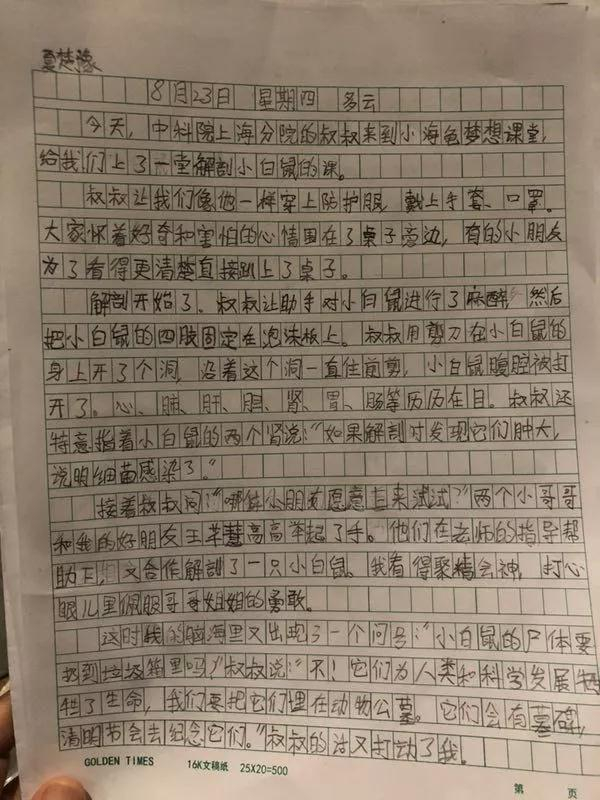 夏楚豫
8月23日 星期四 多云
今天，中科院上海分院的叔叔来到小海龟梦想课堂，
给我们上了一堂解剖小白鼠的课。
叔叔让我们像他一样穿上防护服，戴上手套、口罩。
大家怀着好奇和害怕的心情围在了桌子旁边，有的小朋友
为了看得更清楚直接趴上了桌子。
解剖开始了。叔叔让助手对小白鼠进行了麻醉，然后
把小白鼠的四肢固定在泡沫板上。叔叔用剪刀在小白鼠的
身上开了个洞，沿着这个洞一直往前剪，小白鼠腹腔被打
开了。心、肺、肝、胆、肾、胃、肠等历历在目。叔叔还
特意指着小白鼠的两个肾说："如果解剖时发现它们肿大，
说明细菌感染了。"
接着叔叔问："哪些小朋友愿意上来试试？"两个小哥哥
和我的好朋友王芊慧高高举起了手。他们在老师的指导帮
助下，又合作解剖了一只小白鼠。我看得聚精会神，打心
眼儿里佩服哥哥姐姐的勇敢。
这时我的脑海里又出现了一个问号："小白鼠的尸体要
扔到垃圾箱里吗？"叔叔说："不！它们为人类和科学发展牺
牲了生命，我们要把它们埋在动物公墓。它们会有墓碑，
清明节会去纪念它们。"叔叔的话又打动了我。
GOLDEN TIMES 16K文稿纸 25X20=500
第 页